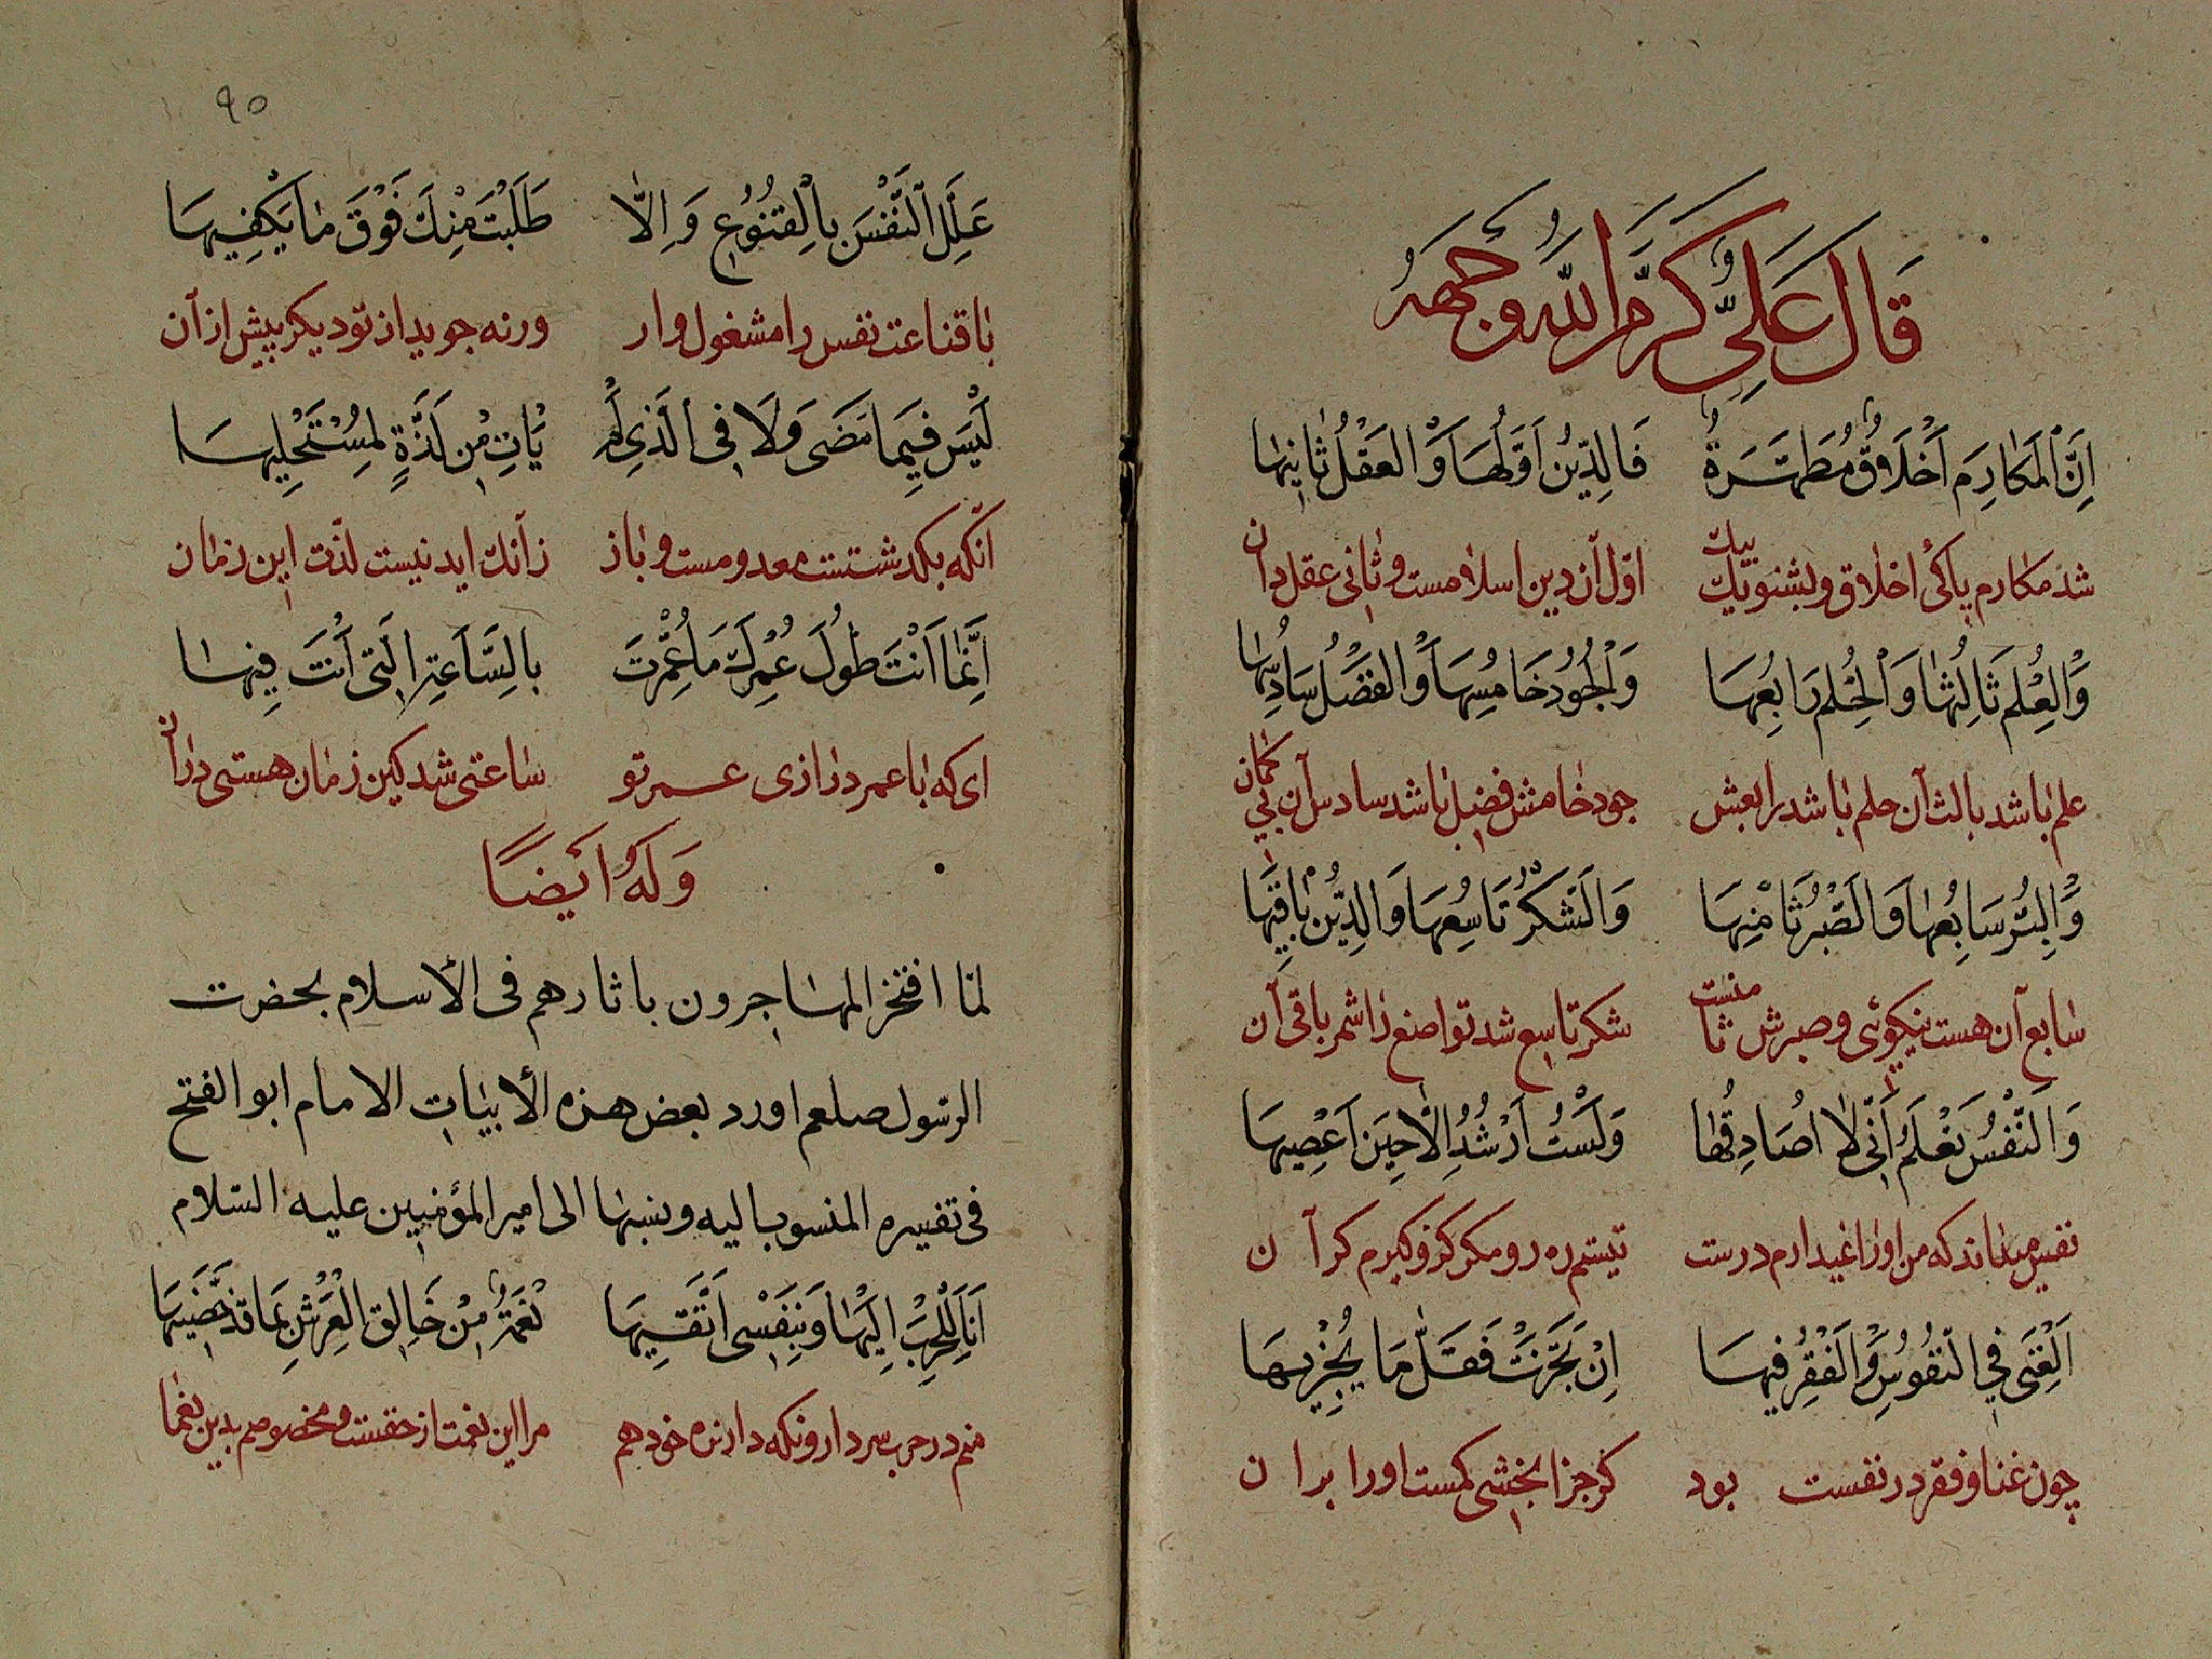 قَالَ عَلِيٌّ كَرَّمَ اللّٰهُ وَجْهَهُ
اِنَّ الْمَكَارِمَ اَخْلَاقٌ مُطَهَّرَةٌ فَالدِّينُ اَوَّلُهَا وَالْعَقْلُ ثَانِيهَا
شد مکارم پاکی اخلاق وبشنو یک بیک اوّل آن دین اسلامست وثانی عقل دان
وَالْعِلْمُ ثَالِثُهَا وَالْحِلْمُ رَابِعُهَا وَالْجُودُ خَامِسُهَا وَالْفَضْلُ سَادِسُهَا
علم باشد بالث آن حلم باشد رابعش جود خامش فضل باشد سادس آن بی کمان
وَالْبِرُّ سَابِعُهَا وَالصَّبْرُ ثَامِنُهَا وَالشُّكْرُ تَاسِعُهَا وَالدِّينُ بَاقِيهَا
سابع آن هست نیکوئی وصبرش ثامنست شکر تاسع شد تواضع را شمر باقی آن
وَالنَّفْسُ تَعْلَمُ اَنِّى لَا اُصَادِقُهَا وَلَسْتُ اَرْشُدُ اِلَّا حِينَ اَعْصِيهَا
نفس میداند که من اورا نمیدارم درست نیستم ره رو مکر کز وکیرم کرآن
اَلْغِنَى فِي النُّفُوسِ وَالْفَقْرُ فِيهَا اِنْ تَجَزَّتْ فَقَلَّ مَا يُجْزِيهَا
چون غنا وفقر در نفست بود کر جزا بخشی کمست اورا بران
٩٥
عَلِّلِ النَّفْسَ بِالْقُنُوعِ وَاِلَّا طَلَبَتْ مِنْكَ فَوْقَ مَا يَكْفِيهَا
با قناعت نفس را مشغول وار ورنه جوید از تو دیکر بیش از آن
لَيْسَ فِيمَا مَضَى وَلَا فِى الَّذِى لَمْ يَاْتِ مِنْ لَذَّةٍ لِمُسْتَحْلِيهَا
آنکه بکدشتست معدومست وباز زآنک اید نیست لذّت این زمان
اِنَّمَا اَنْتَ طُولَ عُمْرِكَ مَا عُمِّرْتَ بِالسَّاعَةِ الَّتِى اَنْتَ فِيهَا
ای که با عمر درازی عمر تو ساعتی شد کین زمان هستی دران
وَلَهُ اَيْضًا
لمّا افتخر المهاجرون باثارهم فى الأسلام بحضرت
الرسول صلعم اورد بعض هذه الأبيات الامام ابو الفتح
فى تفسيره المنسوب اليه ونسبها الى امير المؤمنين عليه السلام
اَنَا لِلْحَرْبِ اِلَيْهَا وَبِنَفْسِى اَتَّقِيهَا نِعْمَةٌ مِنْ خَالِقِ الْعَرْشِ بِهَا قَدْ خَصَّنِيهَا
منم در حرب سردار ونکه دارنده خود هم مرا این نعمت از حقست ومخصوصم بدین نعما